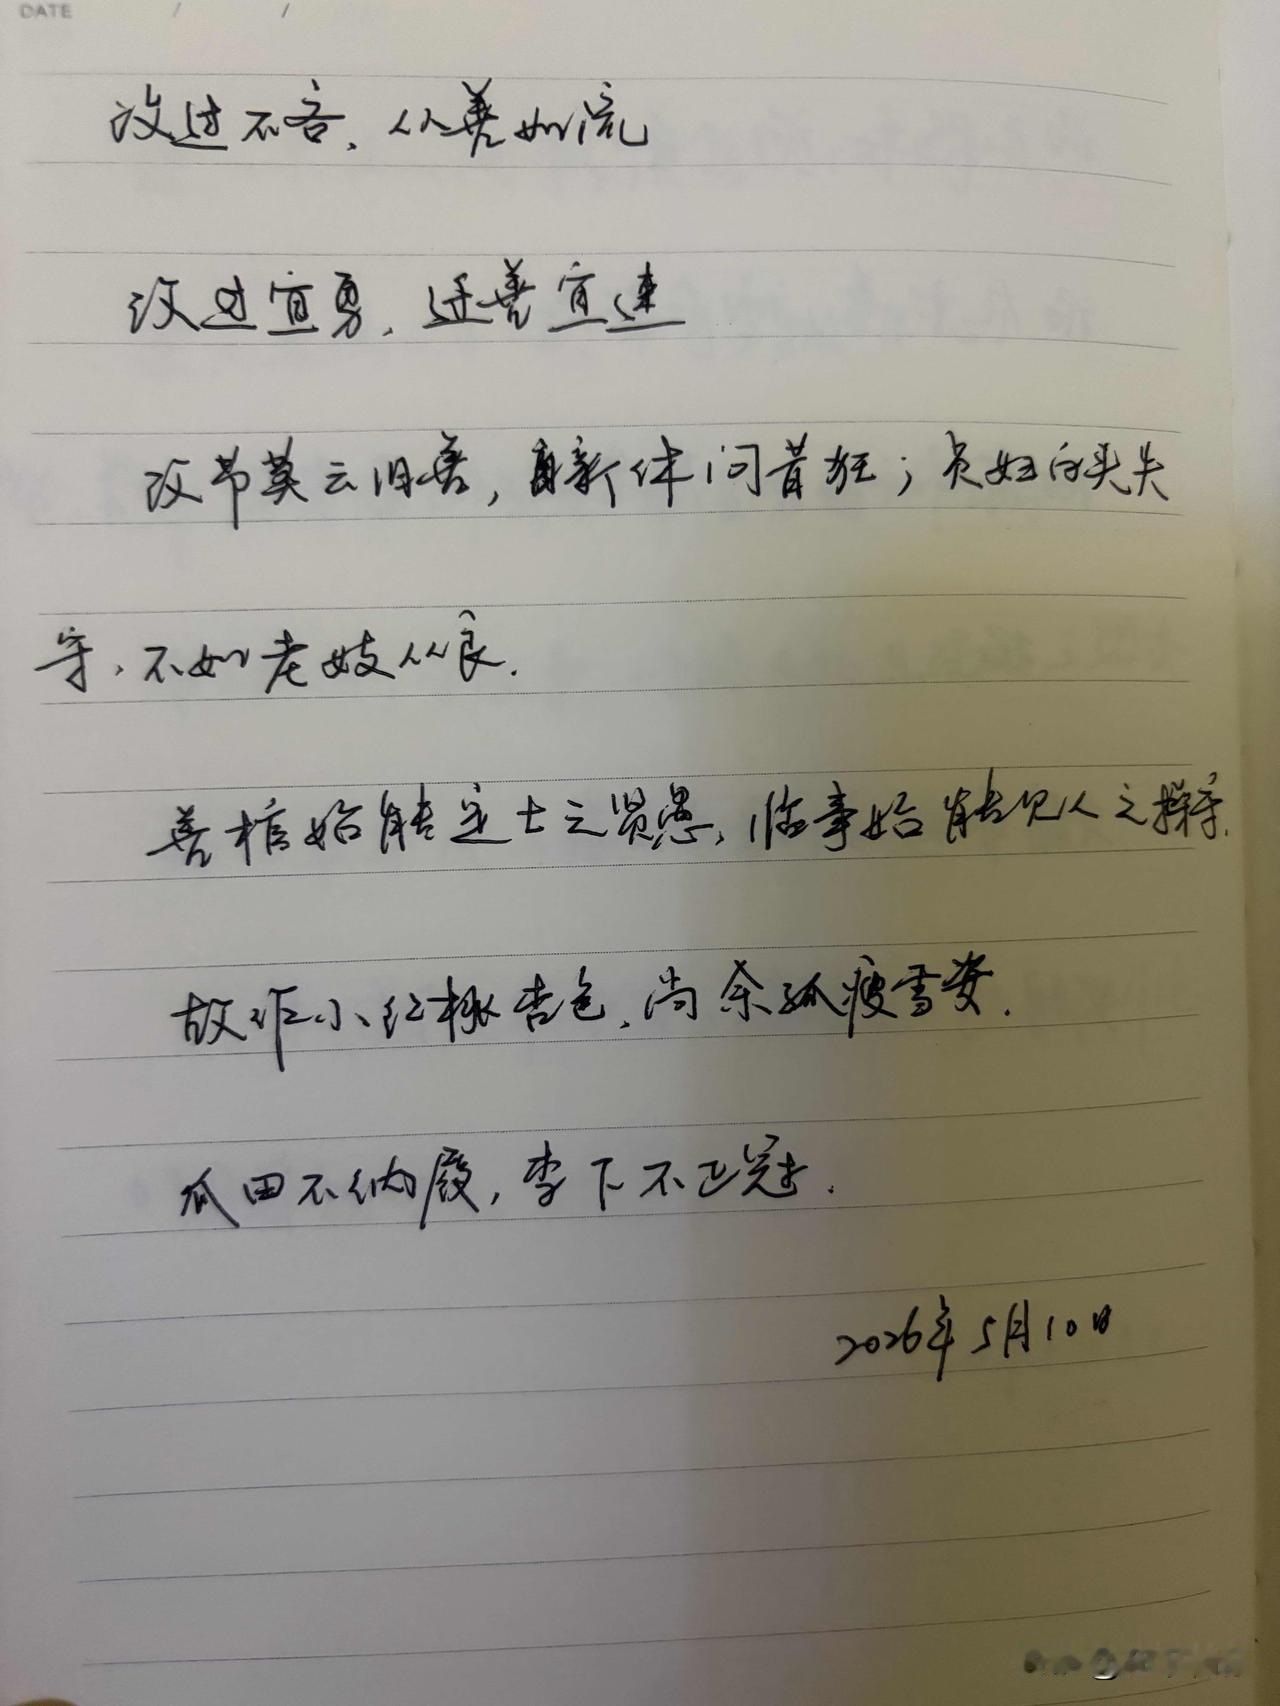 DATE / /
改过不吝、从善如流
改过宜勇，迁善宜速
改节莫云旧善，自新休问昔狂；贞妇白头失
守，不如老妓从良.
盖棺始能定士之贤愚，临事始能见人之操守.
故作小红桃杏色，尚余孤瘦雪姿.
瓜田不纳履，李下不正冠.
2026年5月10日